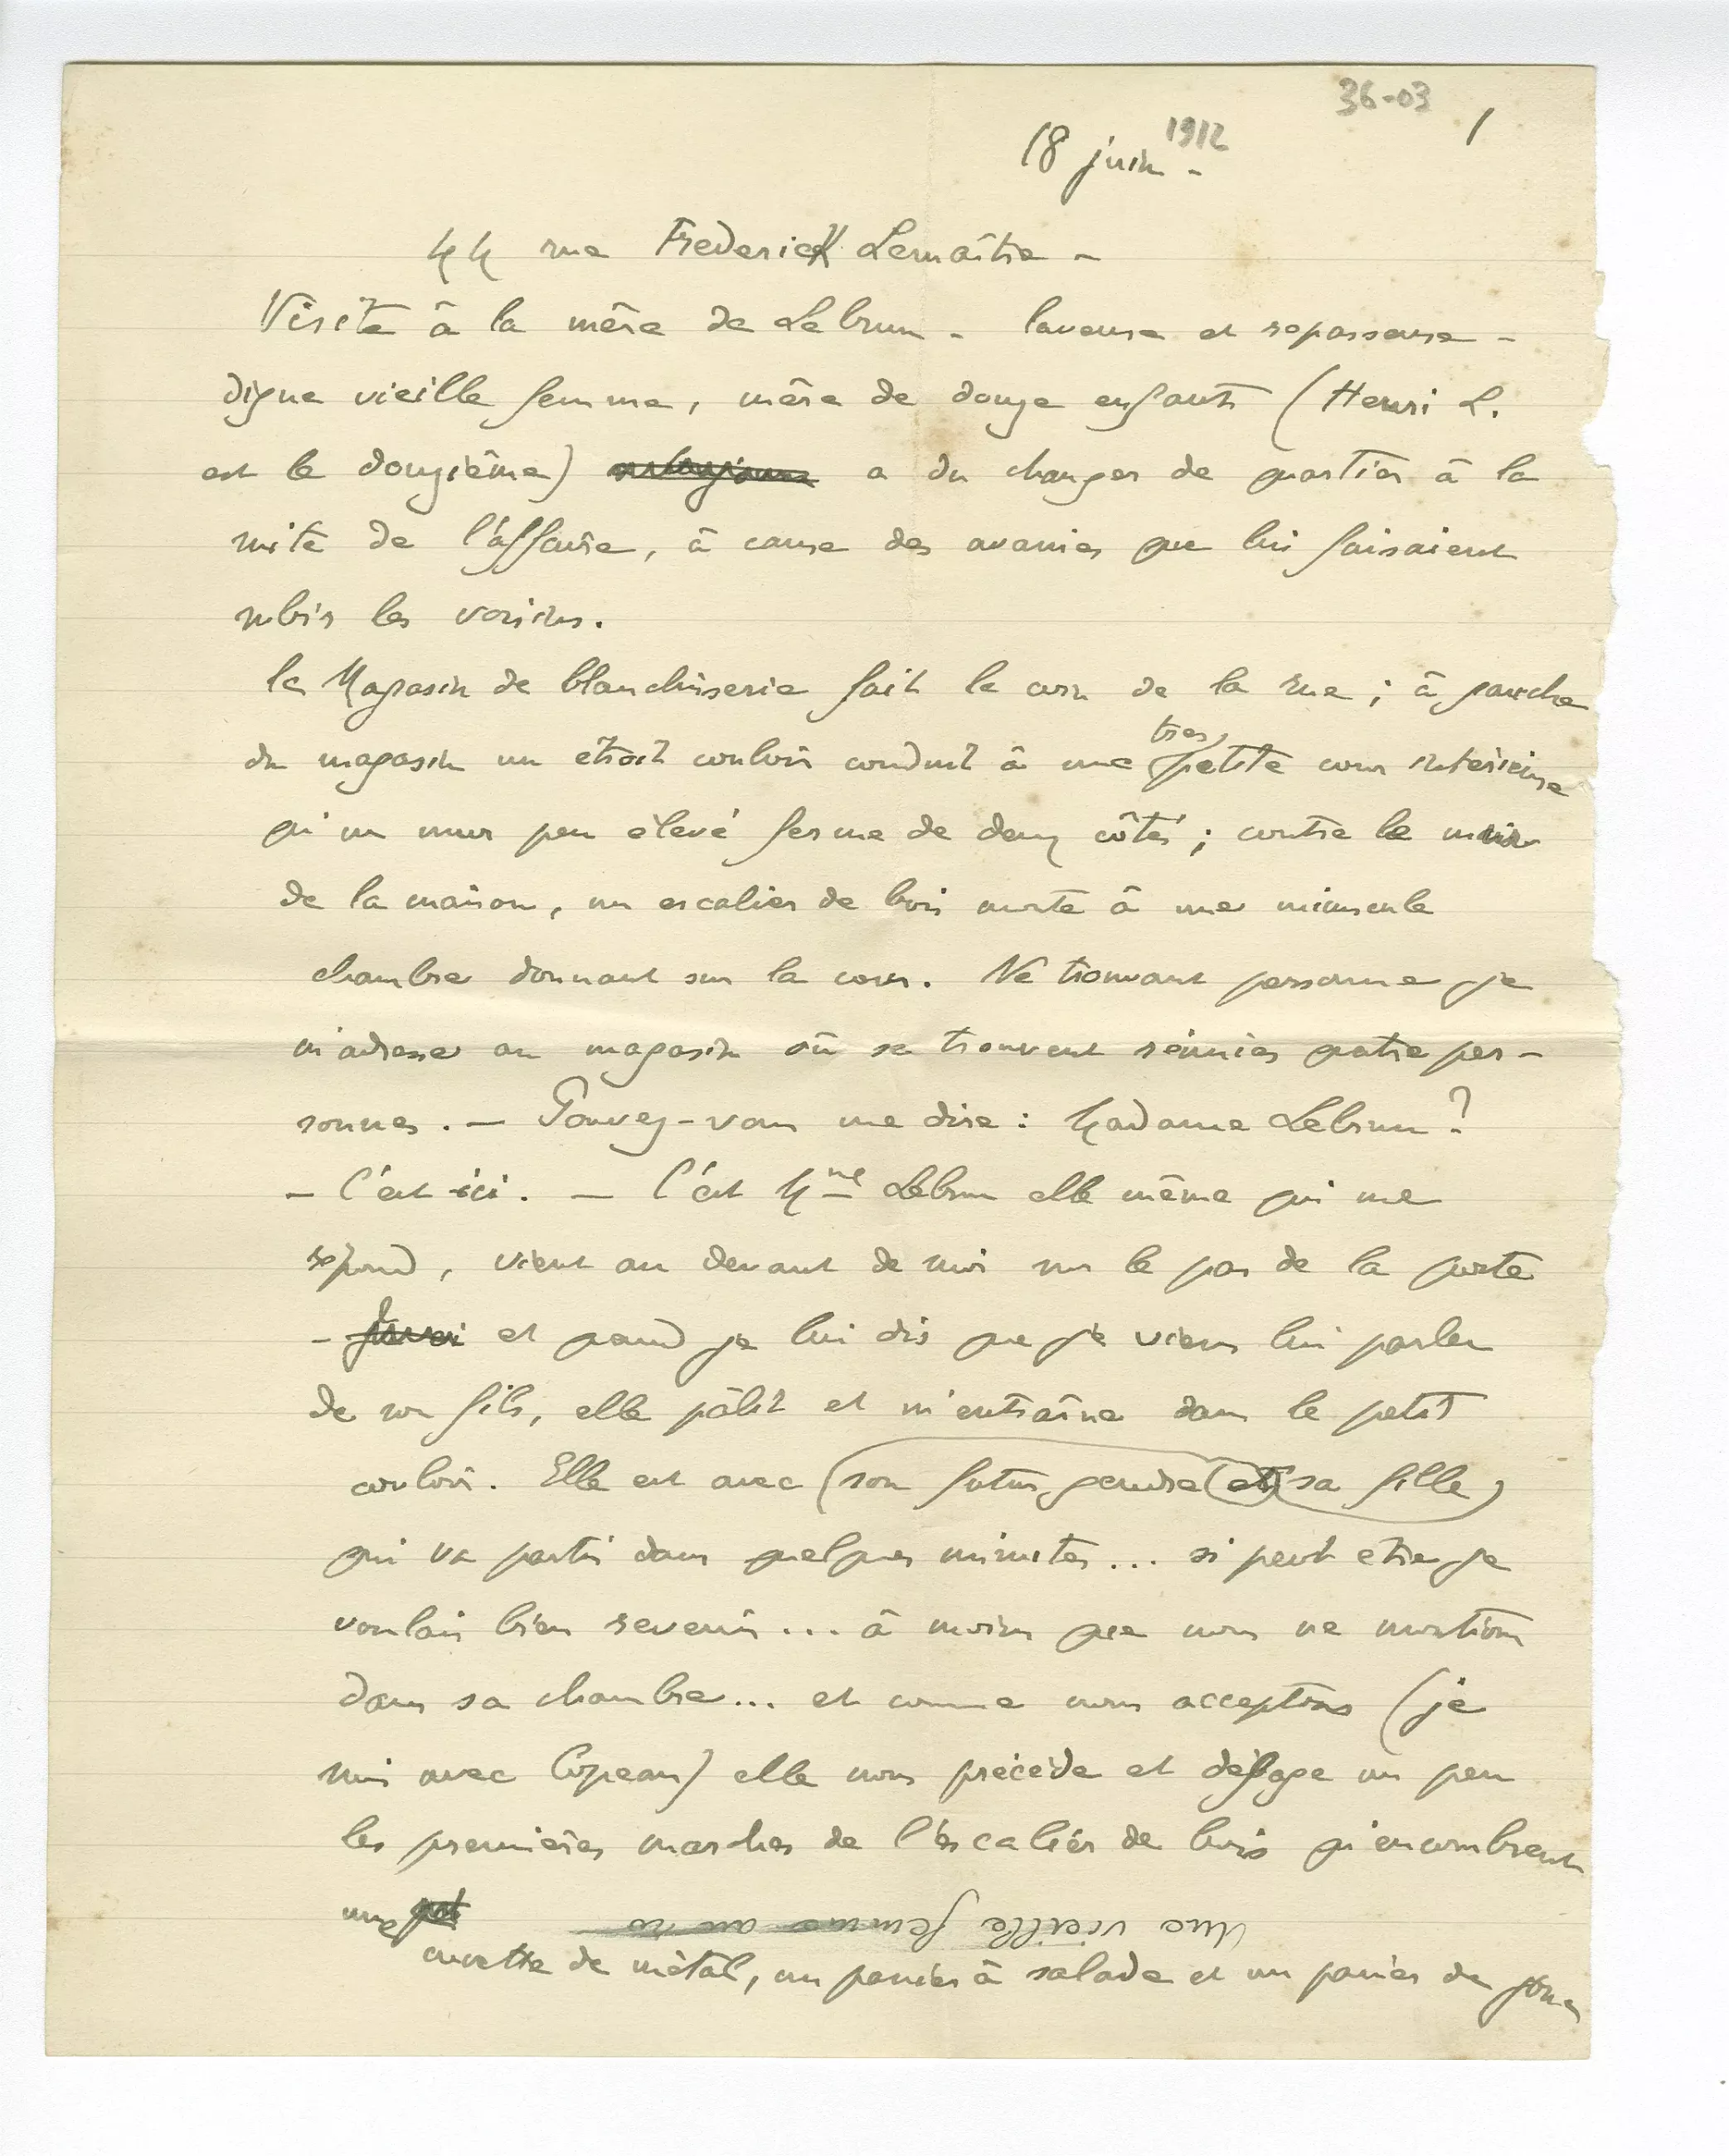 36-03
1
18 juin 1912 -
44 rue Frederick Lemaître -
Visite à la mère de Lebrun - laveuse et repasseuse -
digne vieille femme, mère de douze enfants (Henri L.
est le douzième) a du changer de quartier à la
suite de l'affaire, à cause des avanies que lui faisaient
subir les voisins.
le Magasin de blanchisserie fait le coin de la rue ; à gauche
du magasin un étroit couloir conduit à une très petite cour intérieure
qu'un mur peu élevé ferme de deux côtés ; contre le mur
de la maison, un escalier de bois monte à une minuscule
chambre donnant sur la cour. Ne trouvant personne je
m'adresse au magasin où se trouvent réunies quatre per-
sonnes. — Pouvez-vous me dire : Madame Lebrun ?
- C'est ici. — C'est Mme Lebrun elle même qui me
répond, vient au devant de moi sur le pas de la porte
- et quand je lui dis que je viens lui parler
de son fils, elle pâlit et m'entraîne dans le petit
couloir. Elle est avec (son futur gendre (et) sa fille)
qui va partir dans quelques minutes... si peut etre je
voulais bien revenir... à moins que nous ne montions
dans sa chambre... et comme nous acceptons (je
suis avec Copeau) elle nous précède et dégage un peu
les premières marches de l'escalier de bois qu'encombrent
une
Une vieille femme au
cuvette de métal, un panier à salade et un panier de